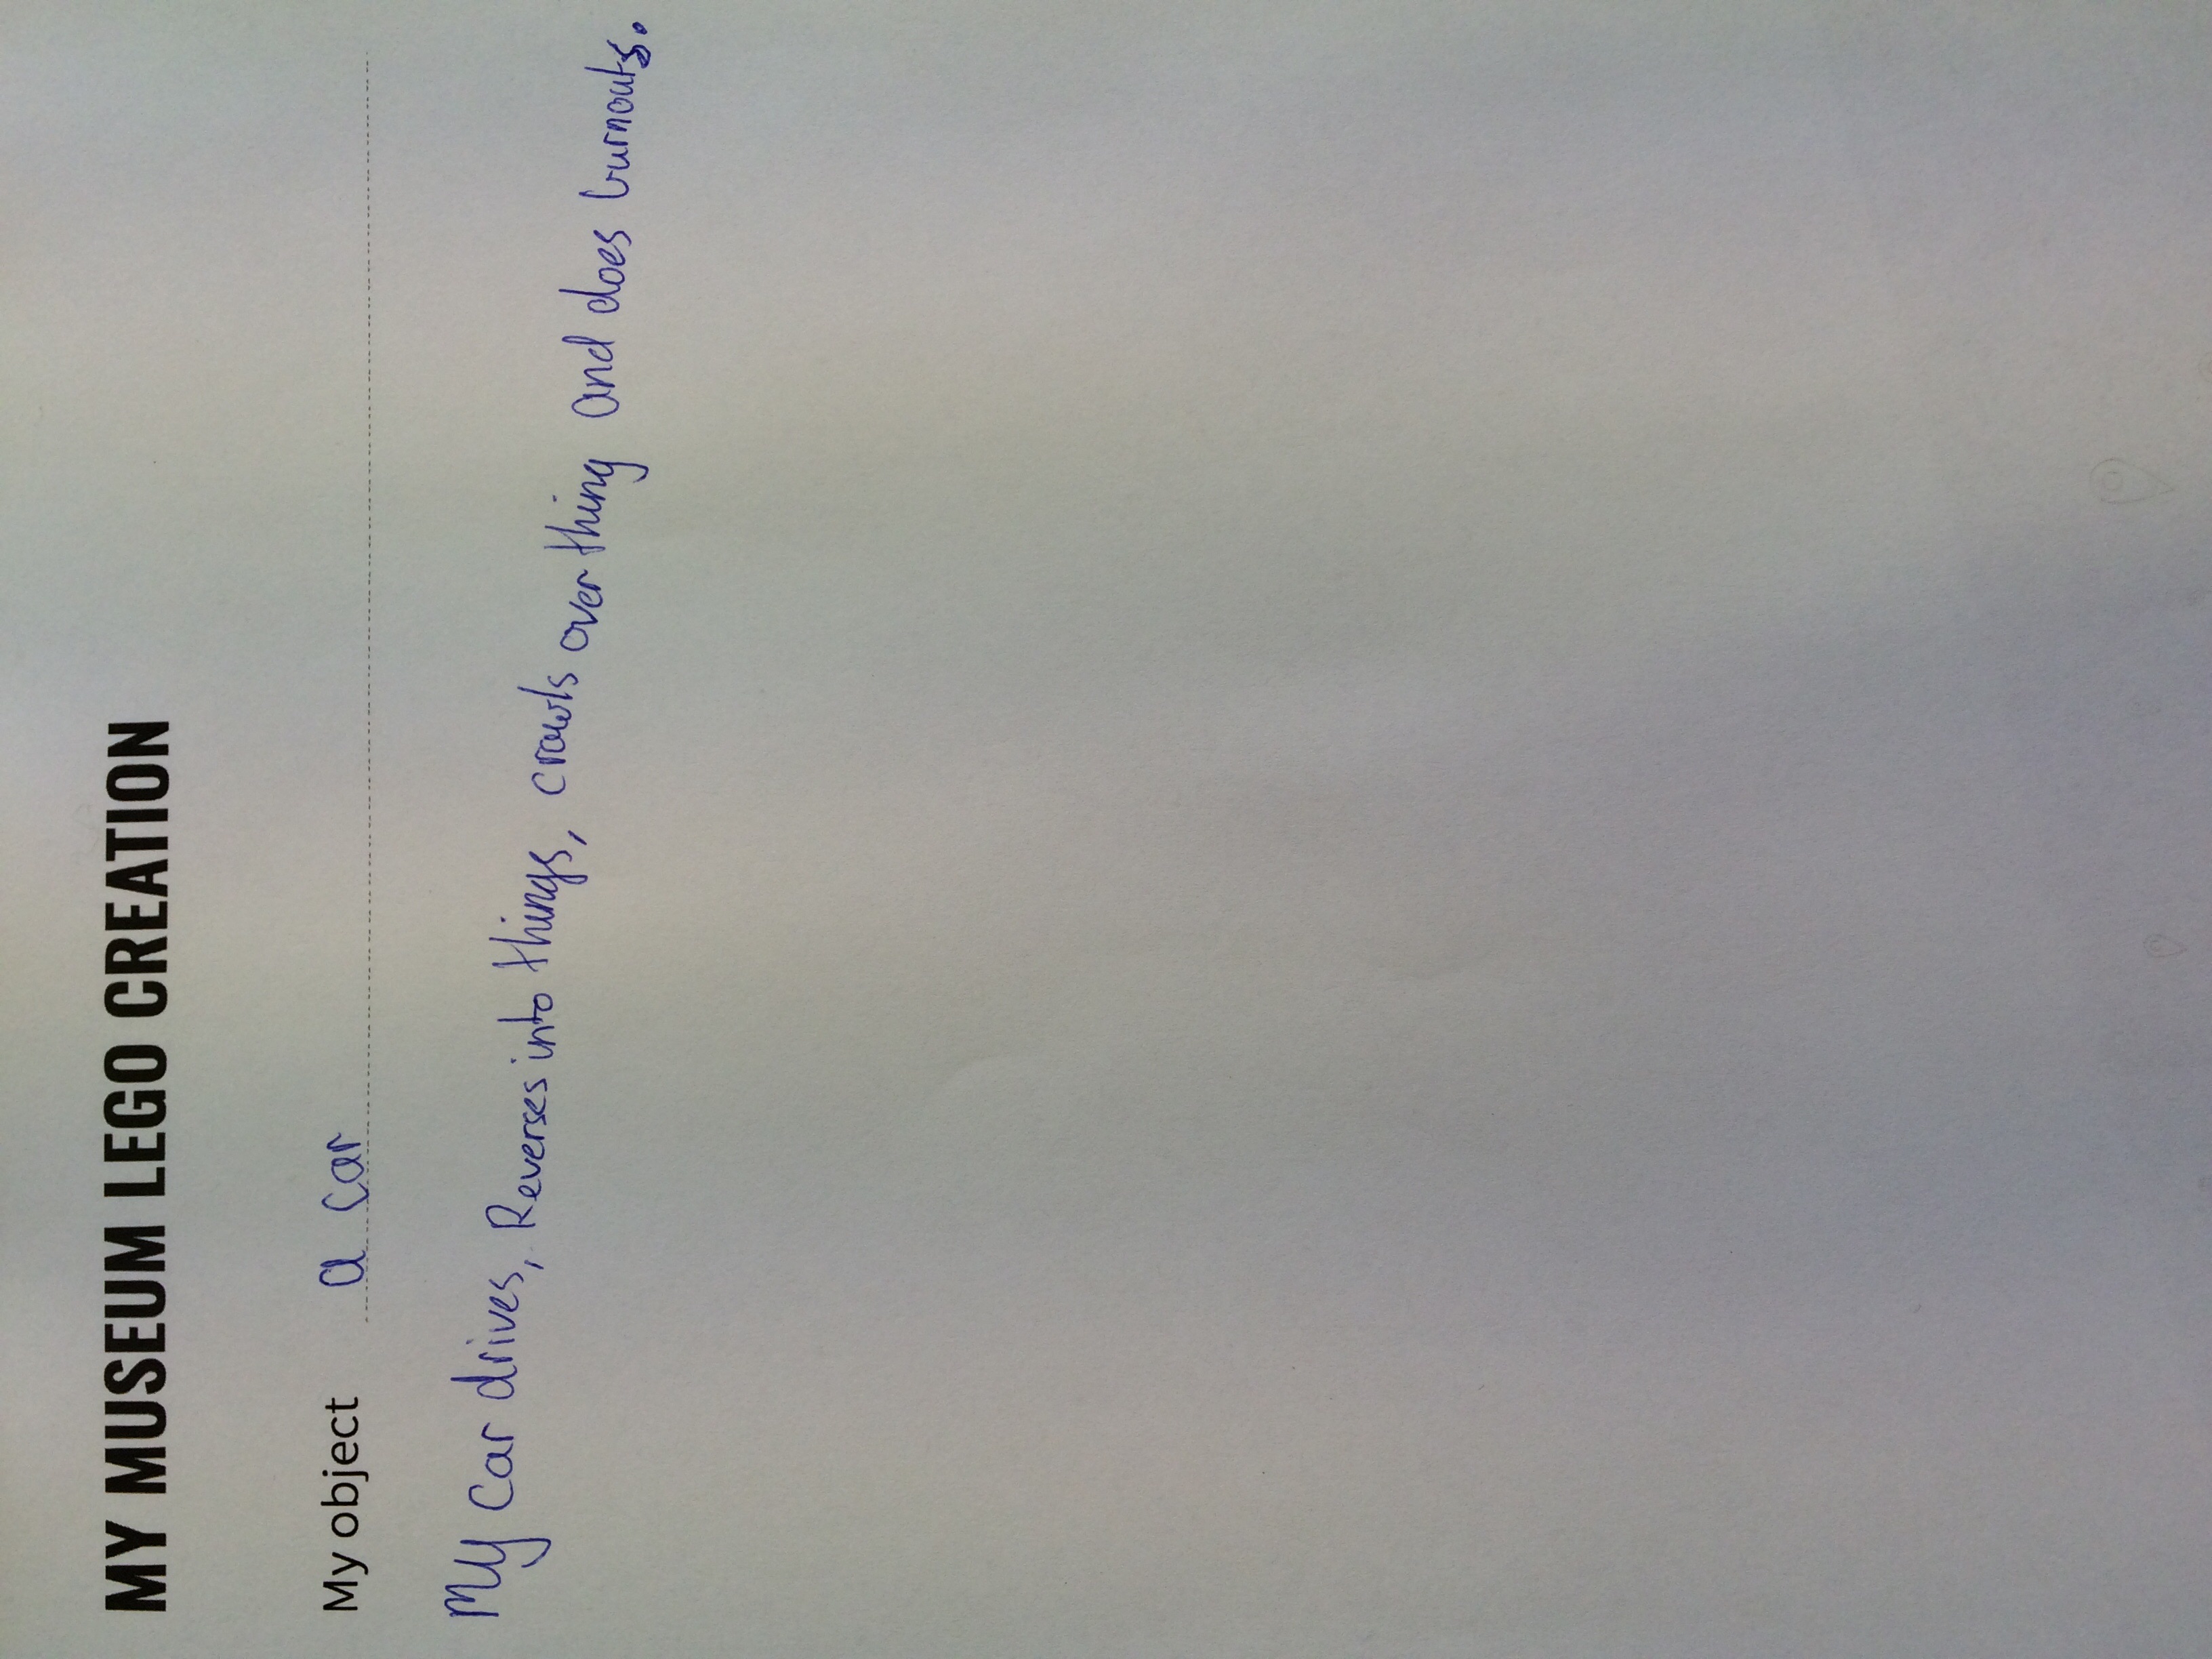 MY MUSEUM LEGO CREATION
My object a car
My car drives, Reverses into things, crawls over thing and does burnouts.